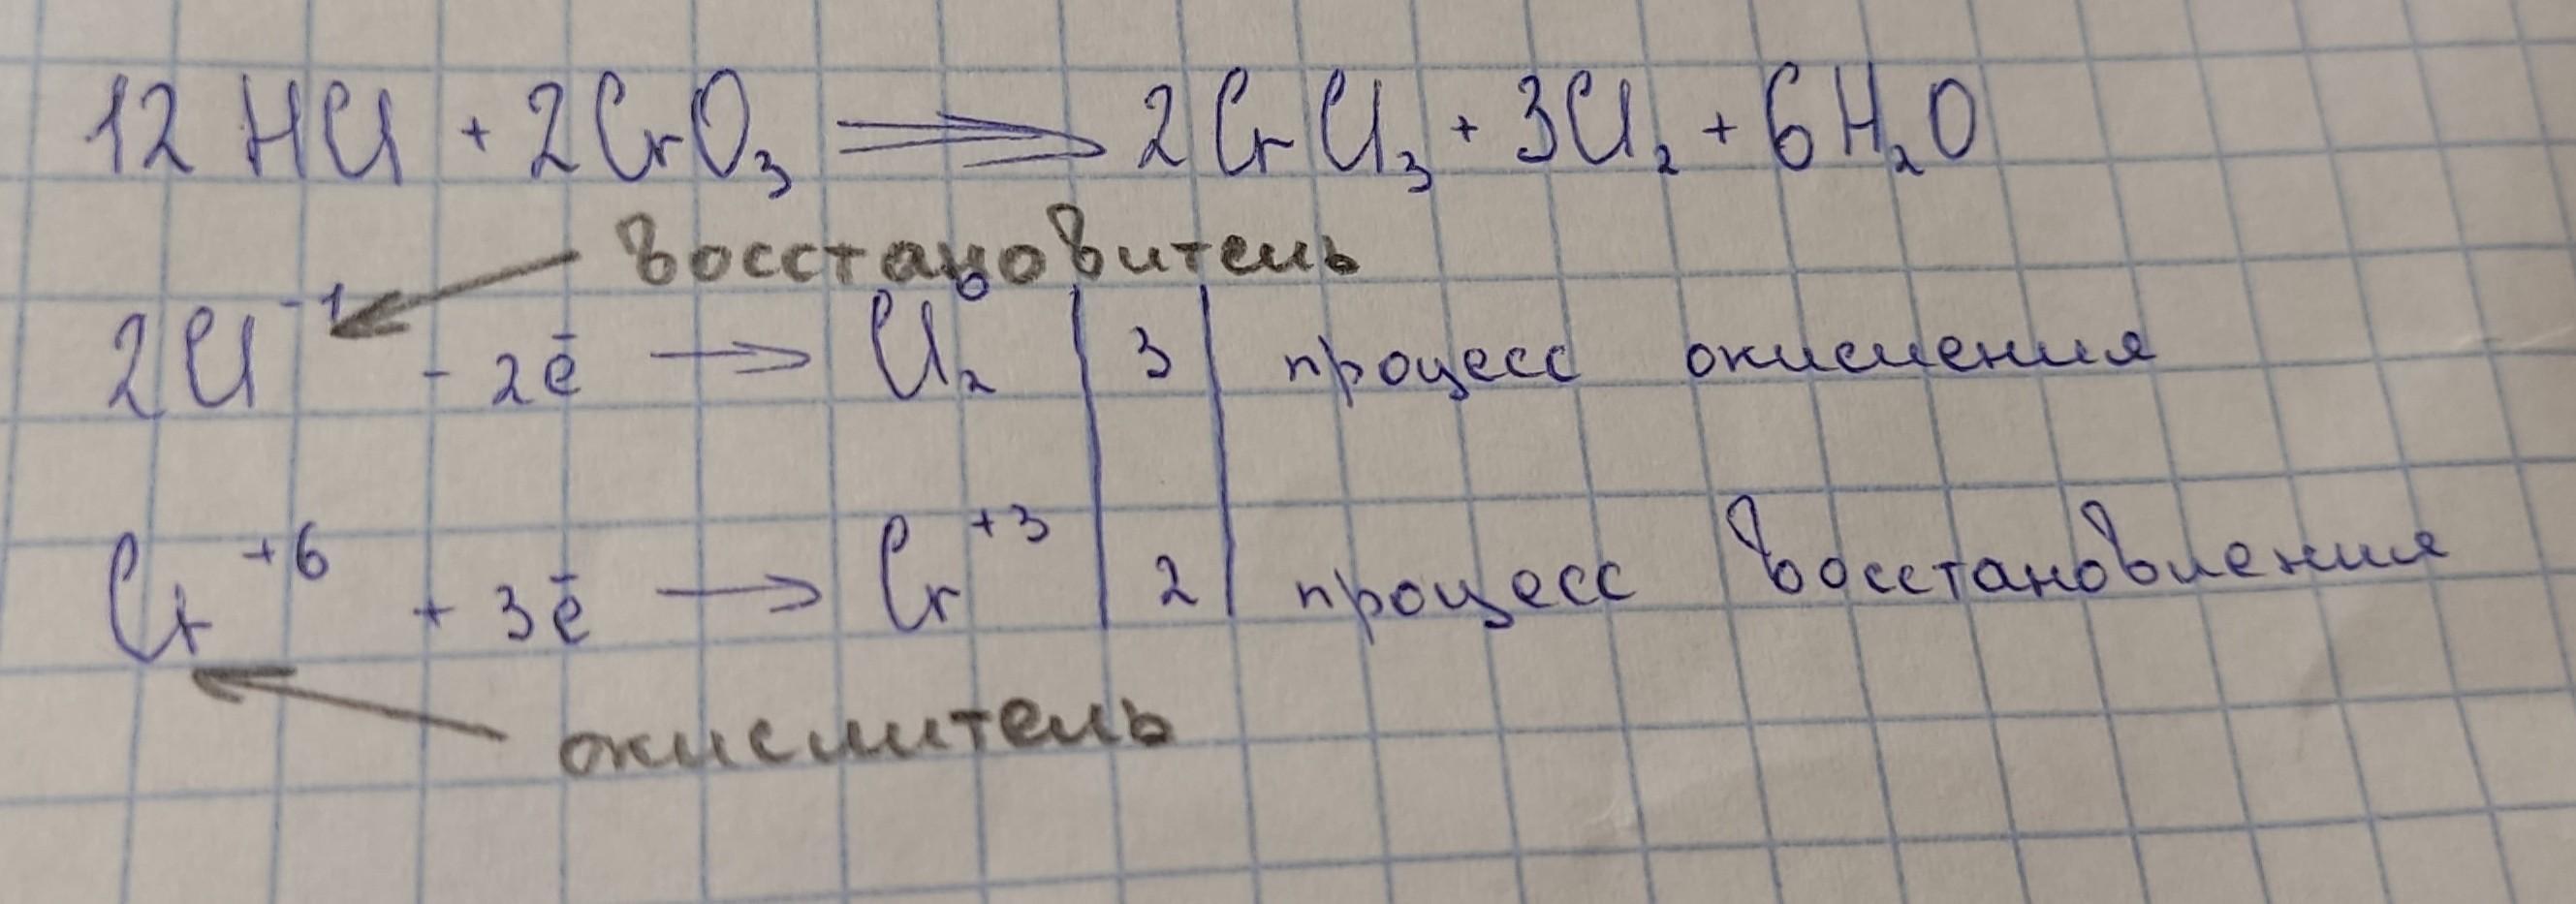 12 HCl + 2CrO₃ ⟹ 2CrCl₃ + 3Cl₂ + 6H₂O
восстановитель
2Cl⁻¹ - 2ē → Cl₂⁰ | 3 | процесс окисления
Cr⁺⁶ + 3ē → Cr⁺³ | 2 | процесс восстановления
окислитель